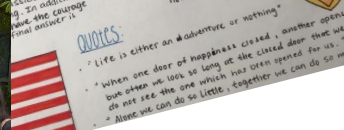 g. In addi
have the courage
final answer is
the
quotes:
· "Life is either an adventure or nothing"
· "When one door of happiness closed, another opens
but often we look so long at the closed door that we
do not see the one which has been opened for us."
" Alone we can do so little, together we can do so m